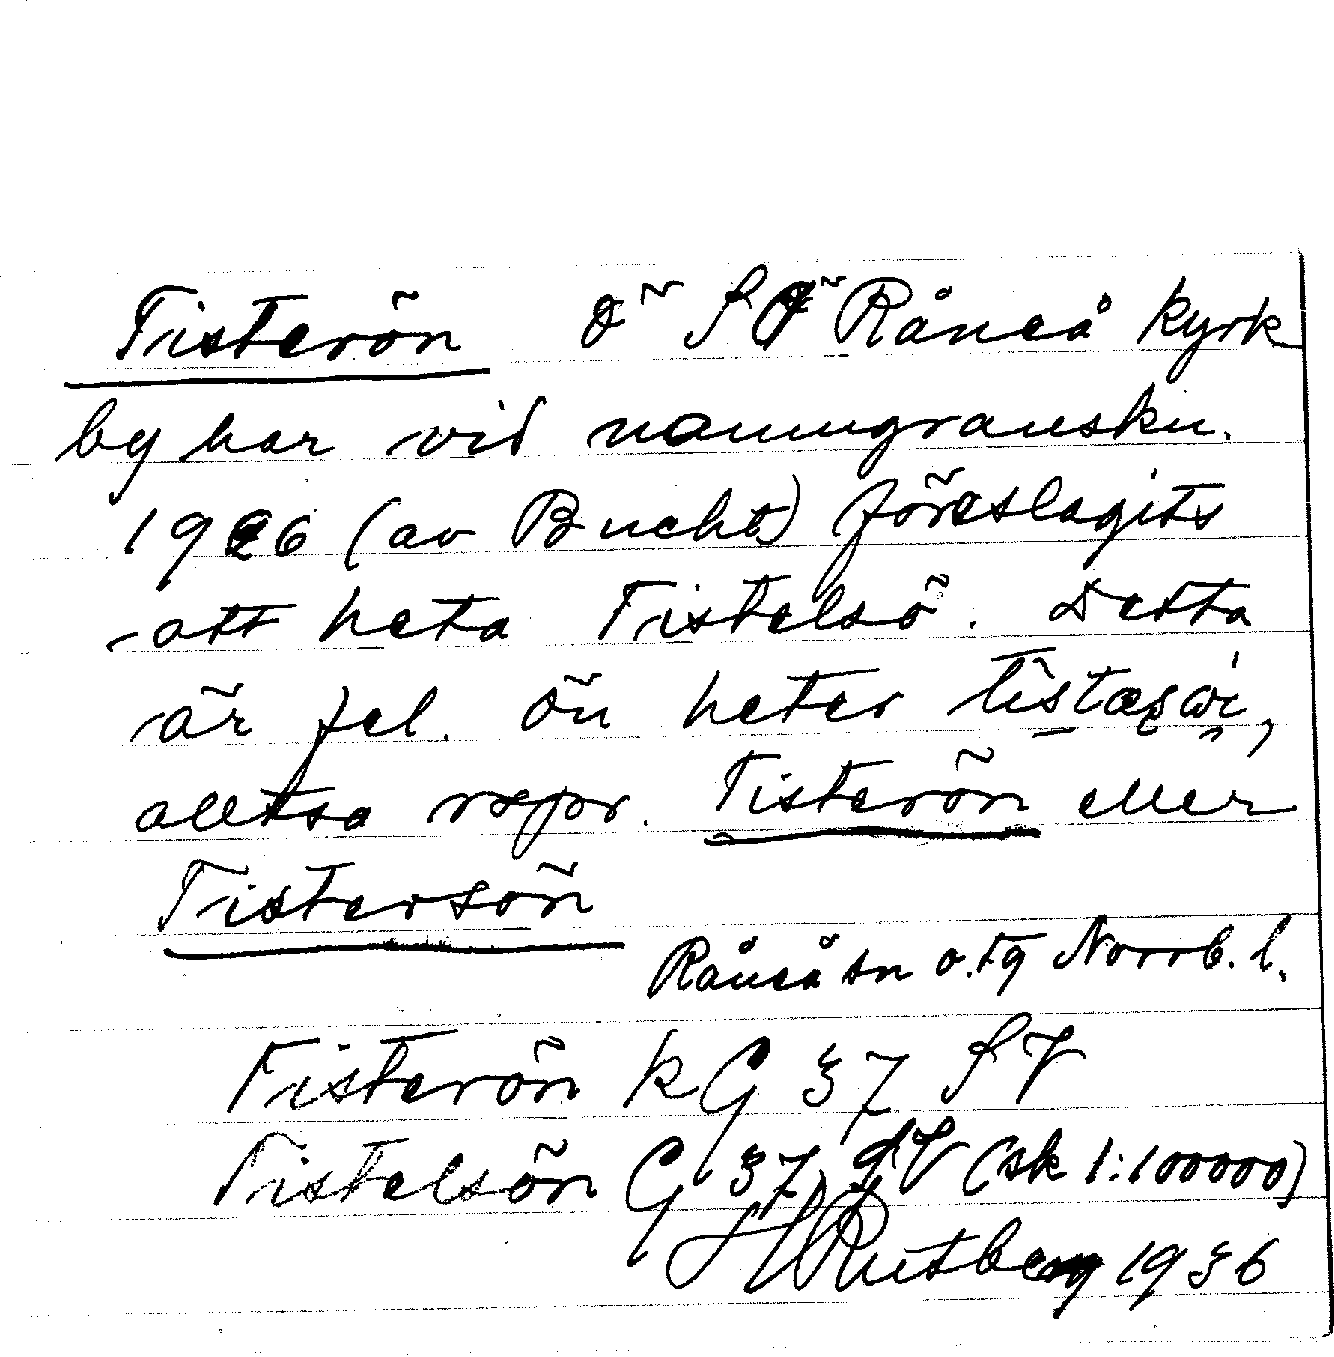 Tisterön ö SO Råneå kyrk
by har vid namngranskn.
1926 (av Bucht) föreslagits
att heta Tistelsö. Detta
är fel. Ön heter
alltså rspr. Tisterön eller
Tistersön
Råneå sn o. tg Norrb. l.
Tisterön kG 37 SV
Tistelsön G 37 SV (sk 1:100000)
H Rutberg 1936